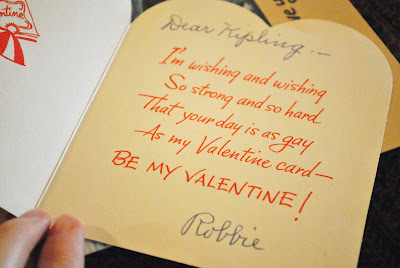 Dear Kipling:—
I'm wishing and wishing
So strong and so hard
That your day is as gay
As my Valentine card—
BE MY VALENTINE!
Robbie